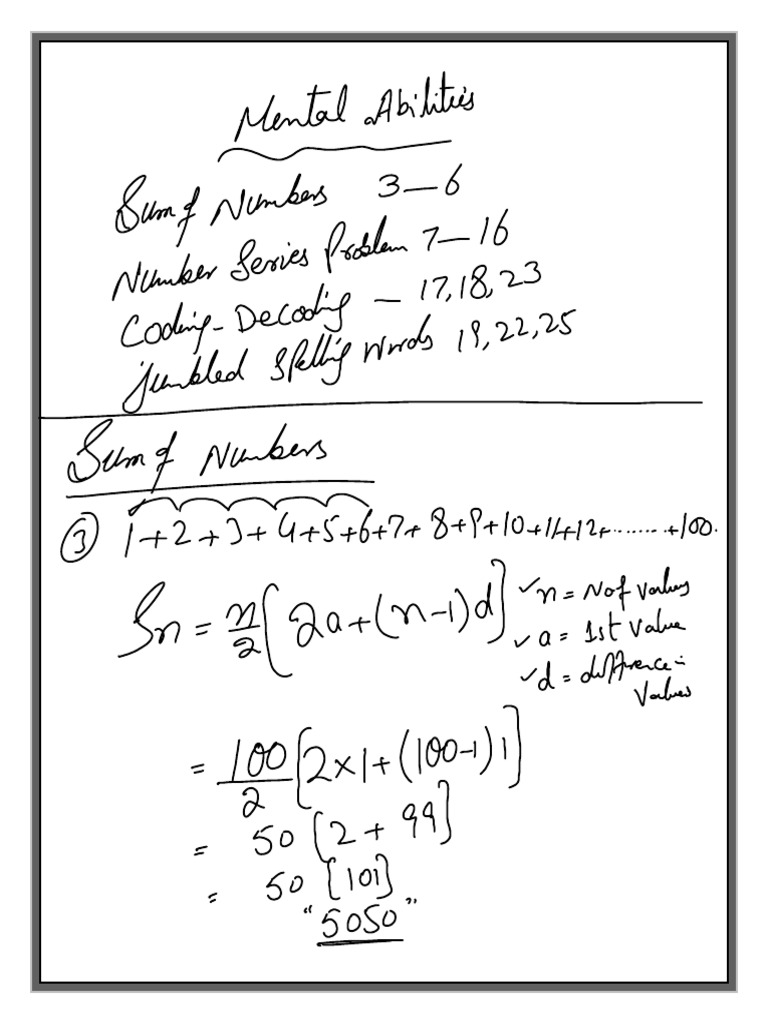 Mental Abilities
Sum of Numbers 3-6
Number Series Problem 7-16
Coding-Decoding - 17,18,23
Jumbled Spelling Words 19,22,25
Sum of Numbers
③ 1+2+3+4+5+6+7+8+9+10+11+12+........+100.
Sn = n/2 [2a+(n-1)d]
✓n = No of values
✓a = 1st Value
✓d = difference in
Values
= 100/2 [2×1+(100-1)1]
= 50 [2+99]
= 50 [101]
"5050"